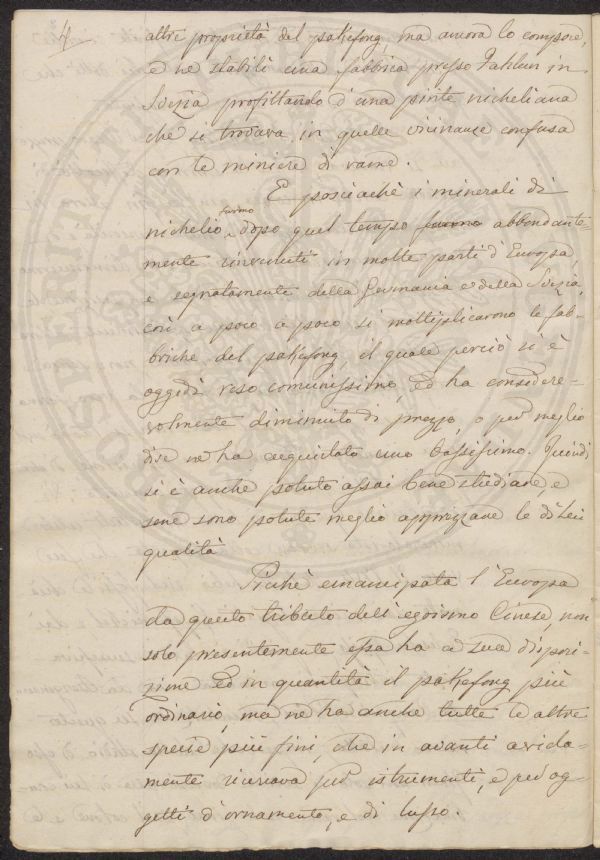 4
altre proprietà del pakfong, ma ancora lo compose,
e ne stabilì una fabbrica presso Fahlun in
Svezia profittando d'una pirite nicheliana
che si trovava in quelle vicinanze confusa
con le miniere di rame.
E posciachè i minerali di
nichelio furono dopo quel tempo furono abbondante-
mente rinvenuti in molte parti d'Europa,
e segnatamente della Germania e della Svezia,
così a poco a poco si moltiplicarono le fab-
briche del pakfong, il quale perciò si è
oggidì reso comunissimo, ed ha considere-
volmente diminuito di prezzo, o per meglio
dire ne ha acquistato uno bassissimo. Quindi
si è anche potuto assai bene studiare, e
sene sono potute meglio apprezzare le di lei
qualità
Sicchè emancipata l'Europa
da questo tributo dell'egoismo Cinese, non
solo presentemente essa ha a sua disposi-
zione ed in quantità il pakfong più
ordinario, ma ne ha anche tutte le altre
specie più fini, che in avanti avida-
mente ricercava per istrumenti, e per og-
getti d'ornamento, e di lusso.